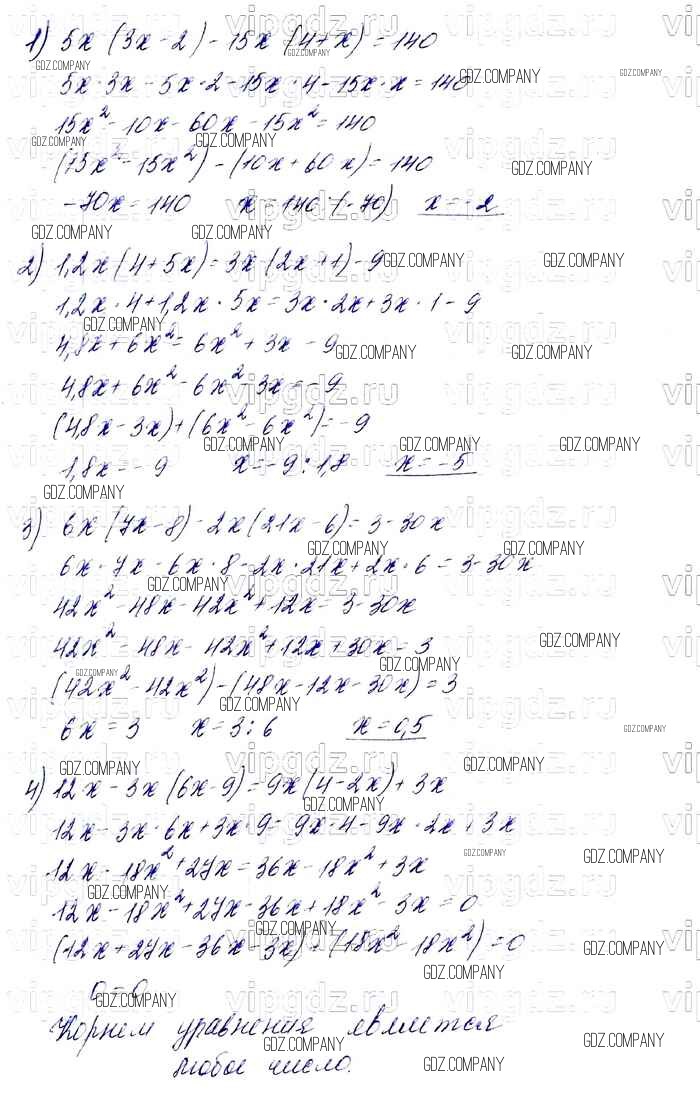 1) 5x (3x - 2) - 15x (4+x) = 140
5x · 3x - 5x · 2 - 15x · 4 - 15x · x = 140
15x² - 10x - 60x - 15x² = 140
(15x² - 15x²) - (10x + 60x) = 140
-70x = 140 x = 140 : (-70) x = -2
2) 1,2x (4 + 5x) = 3x (2x + 1) - 9
1,2x · 4 + 1,2x · 5x = 3x · 2x + 3x · 1 - 9
4,8x + 6x² = 6x² + 3x - 9
4,8x + 6x² - 6x² - 3x = -9
(4,8x - 3x) + (6x² - 6x²) = -9
1,8x = -9 x = -9 : 1,8 x = -5
3) 6x (7x - 8) - 2x (21x - 6) = 3 - 30x
6x · 7x - 6x · 8 - 2x · 21x + 2x · 6 = 3 - 30x
42x² - 48x - 42x² + 12x = 3 - 30x
42x² - 48x - 42x² + 12x + 30x = 3
(42x² - 42x²) - (48x - 12x - 30x) = 3
6x = 3 x = 3 : 6 x = 0,5
4) 12x - 3x (6x - 9) = 9x (4 - 2x) + 3x
12x - 3x · 6x + 3x · 9 = 9x · 4 - 9x · 2x + 3x
12x - 18x² + 27x = 36x - 18x² + 3x
12x - 18x² + 27x - 36x + 18x² - 3x = 0
(12x + 27x - 36x - 3x) + (18x² - 18x²) = 0
0 = 0
Корнем уравнения является
любое число.